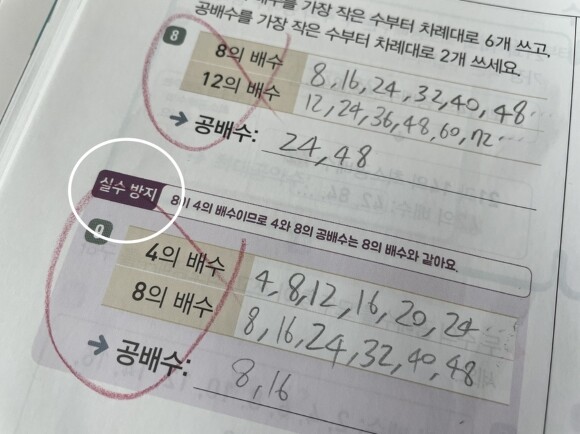 배수를 가장 작은 수부터 차례대로 6개 쓰고,
공배수를 가장 작은 수부터 차례대로 2개 쓰세요.
8
8의 배수 8, 16, 24, 32, 40, 48 ···
12의 배수 12, 24, 36, 48, 60, 72 ···
→ 공배수: 24, 48
실수 방지 8이 4의 배수이므로 4와 8의 공배수는 8의 배수와 같아요.
9
4의 배수 4, 8, 12, 16, 20, 24 ···
8의 배수 8, 16, 24, 32, 40, 48
→ 공배수: 8, 16